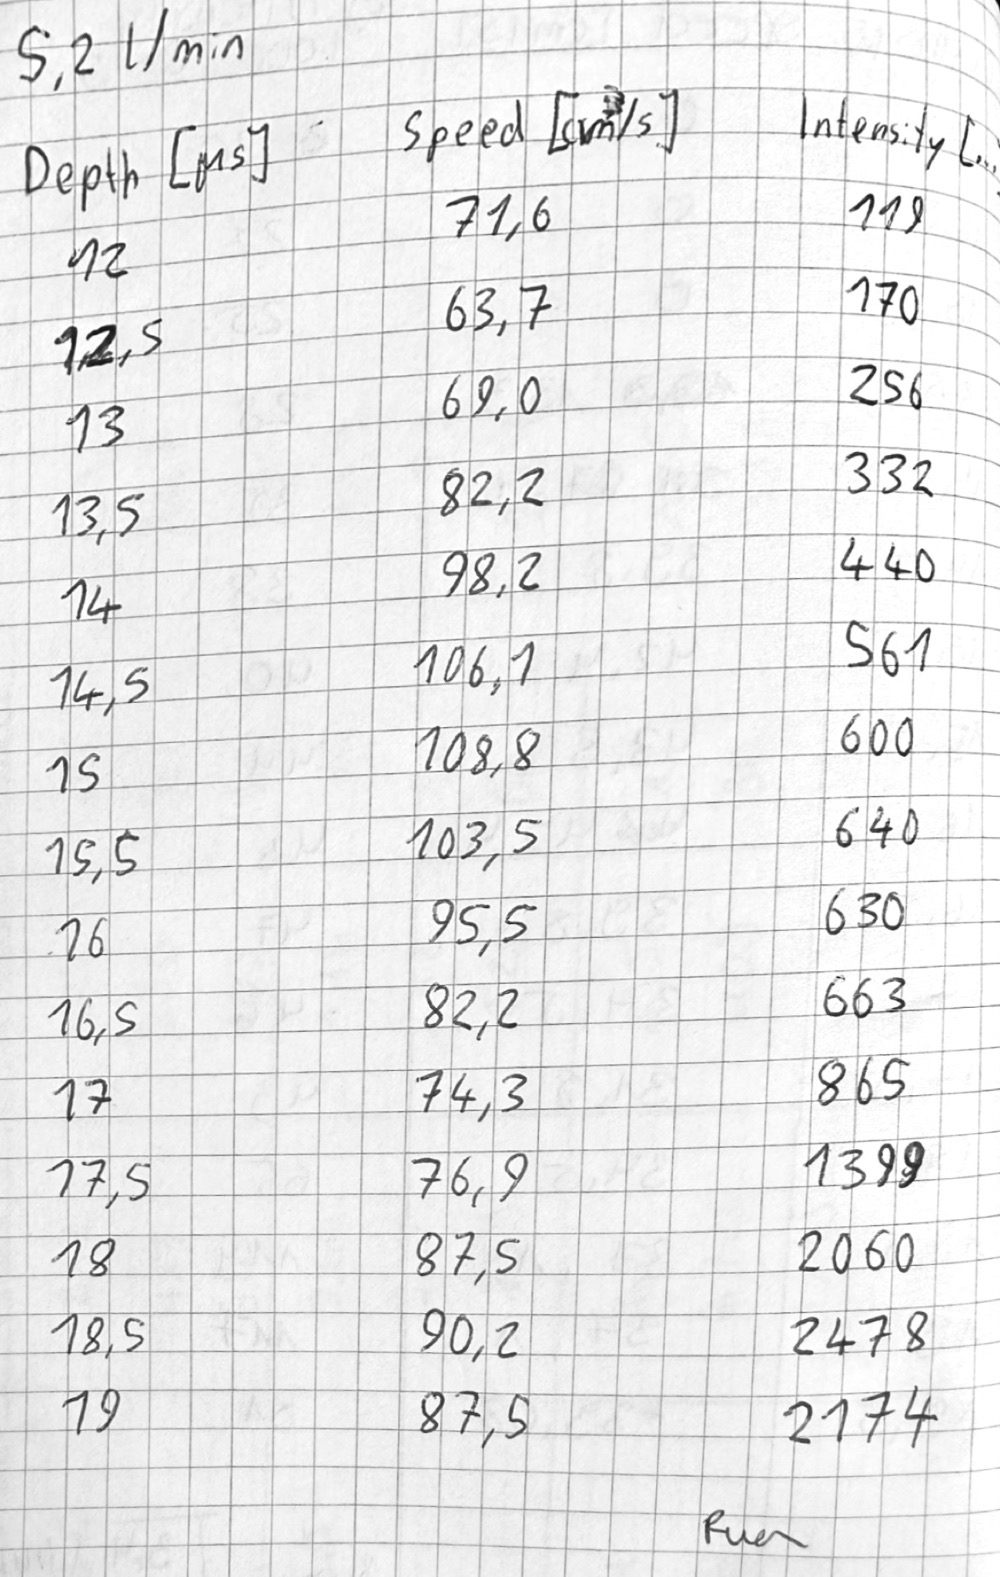 5,2 l/min
Depth [µs] Speed [cm/s] Intensity [...
12 71,6 119
12,5 63,7 170
13 69,0 256
13,5 82,2 332
14 98,2 440
14,5 106,1 561
15 108,8 600
15,5 103,5 640
16 95,5 630
16,5 82,2 663
17 74,3 865
17,5 76,9 1399
18 87,5 2060
18,5 90,2 2478
19 87,5 2174